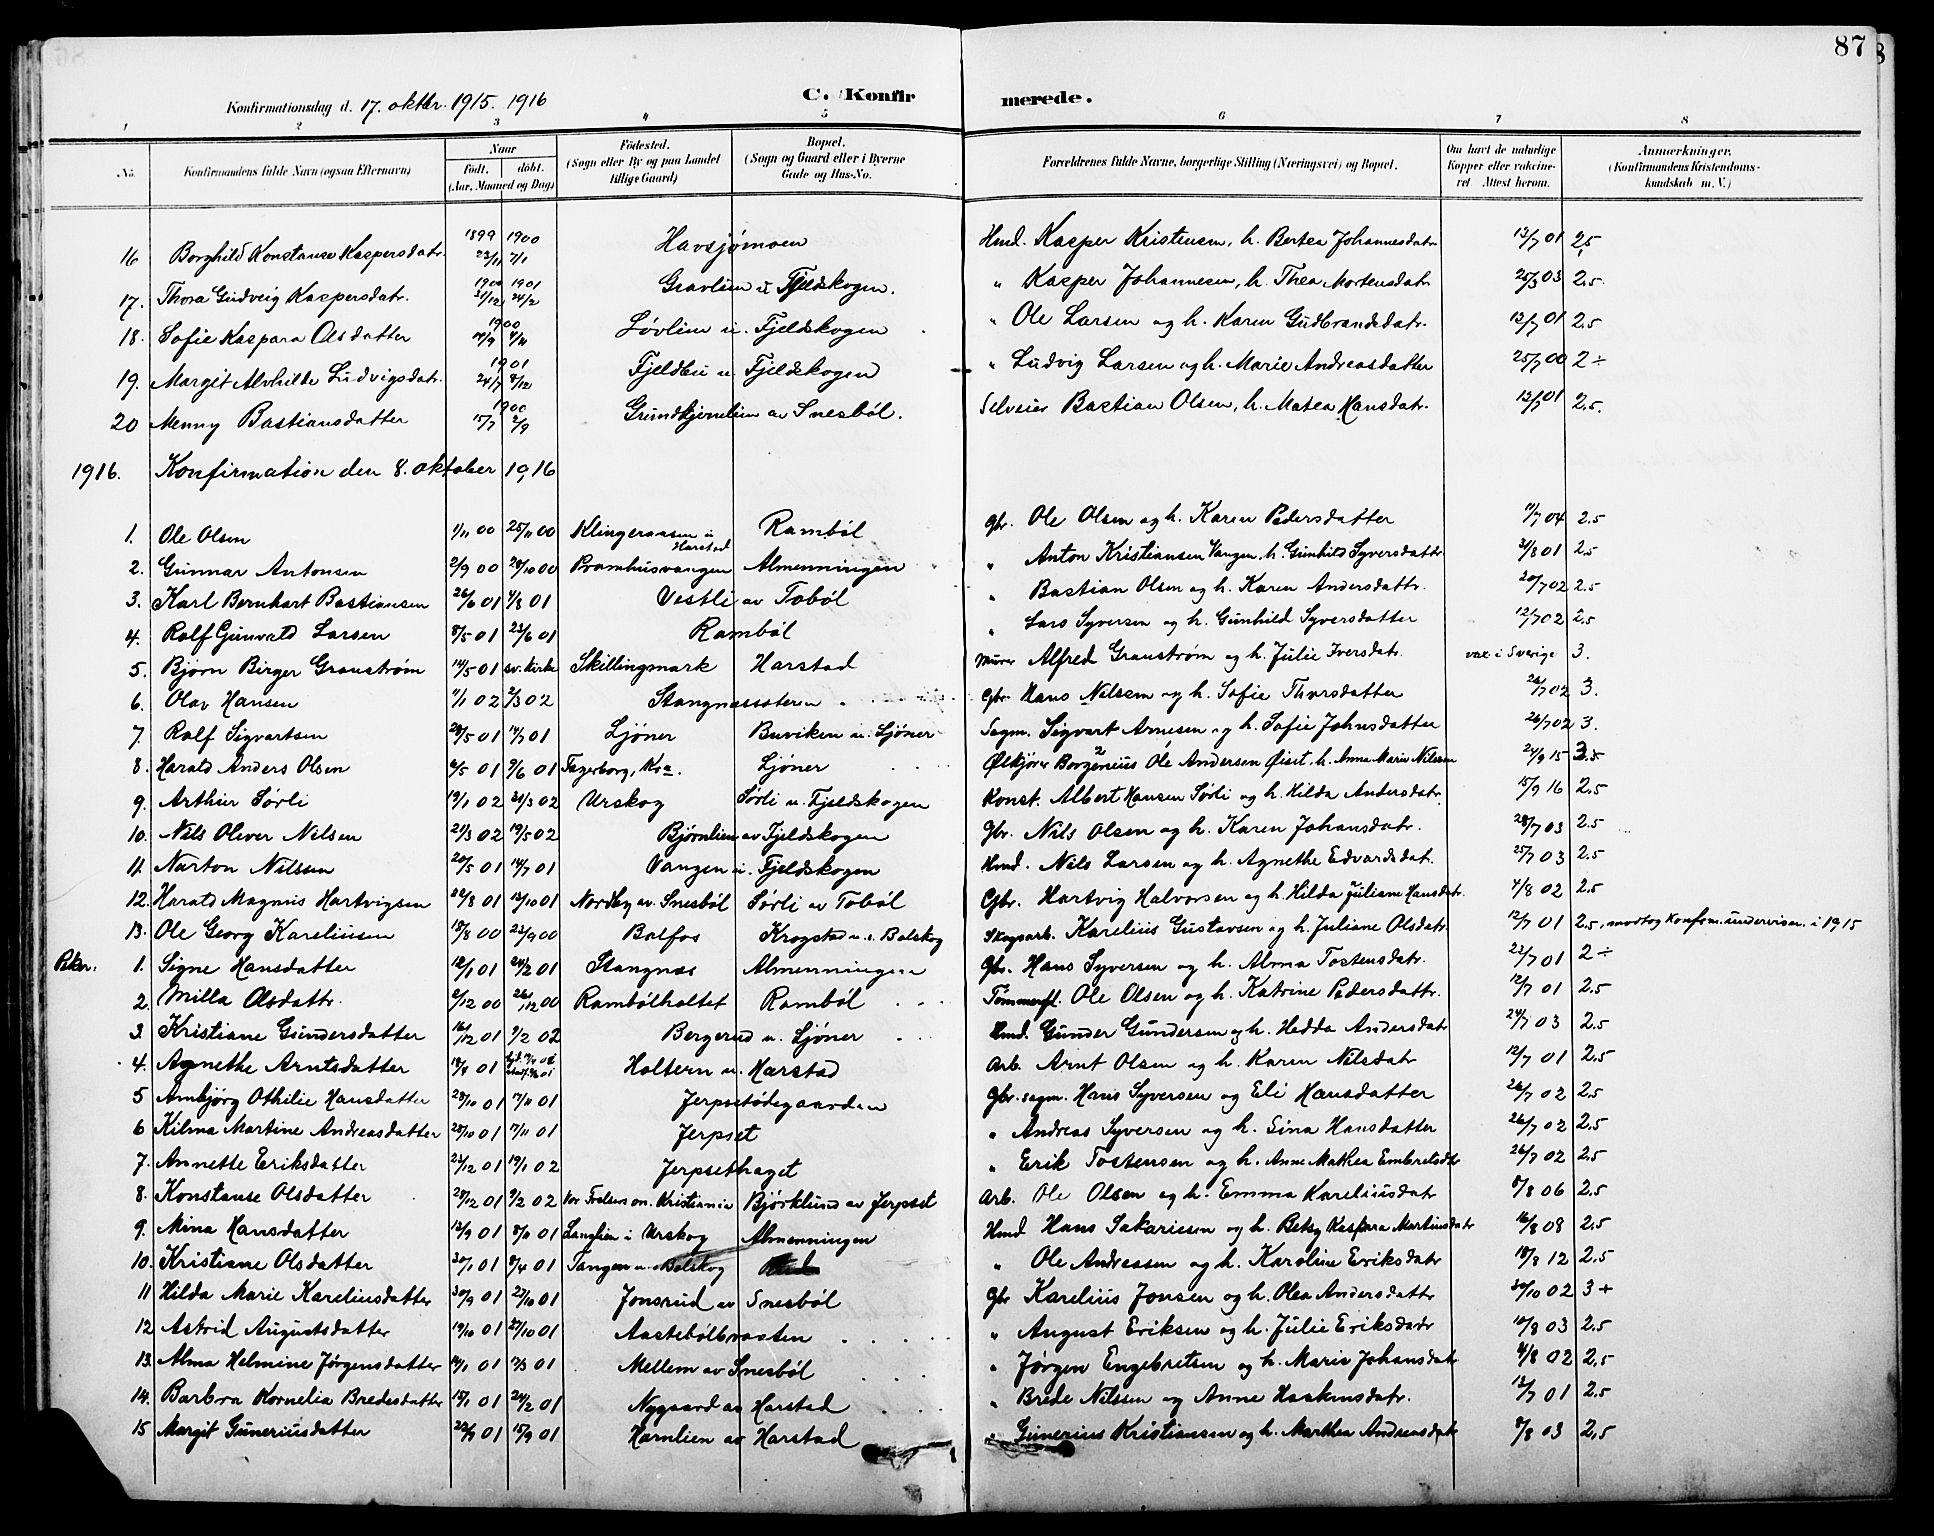 87
Konfirmationsdag d. 17. oktbr. 1915. 1916 C. Konfirmerede.
1 2 3 4 5 6 7 8
No. Konfirmandens fulde Navn (ogsaa Efternavn) Naar født. døbt. (Aar, Maaned og Dag) Födested. (Sogn eller By og paa Landet tillige Gaard) Bopæl. (Sogn og Gaard eller i Byerne Gade og Hus-No. Forældrenes fulde Navne, borgerlige Stilling (Næringsvei) og Bopæl. Om havt de naturlige Kopper eller vaccineret Attest herom. Anmærkninger, (Konfirmandens Kristendomskundskab m. V.)
16 Borghild Konstanse Kaspersdatr. 1899 23/11 1900 7/1 Havsjømoen Hmd. Kasper Kristensen, h. Bertea Johannesdatr 13/7 01 2,5
17. Thora Gudveig Kaspersdatr. 1900 31/12 1901 24/2 Gravlien u. Fjeldskogen. " Kasper Johannesen, h. Thea Mortensdatr 25/3 03 2,5.
18. Sofie Kaspara Olsdatter 1900 4/11 Løvlien u. Fjeldskogen " Ole Larsen og h. Karen Gudbrandsdatr. 12/7 01 2,5
19. Margit Alvhilde Ludvigsdatr. 1901 24/7 8/12 Fjeldbu u. Fjeldskogen " Ludvig Larsen og h. Marie Andreasdatter 25/7 00 2÷
20 Menny Bastiansdatter 1900 15/7 2/9 Grundtjernlien av Snesböl. Selveier Bastian Olsen, h. Matea Hansdatr. 12/7 01 2,5.
1916. Konfirmation den 8. oktober 1916
1. Ole Olsen 1/11 00 25/11 00 Klingeraasen u Harstad Ramböl Gbr. Ole Olsen og h. Karen Pedersdatter 11/7 04 2,5
2. Gunnar Antonsen 2/9 00 28/10 00 Bramhusvangen Almenningen " Anton Kristiansen Vangen, h. Gunhild Syversdattr 3/8 01 2,5
3. Karl Bernhart Bastiansen 26/6 01 4/8 01 Vestli av Toböl " Bastian Olsen og h. Karen Andersdattr. 20/7 02 2,5
4. Rolf Gunvald Larsen 8/5 01 23/6 01 Ramböl " Lars Syversen og h. Gunhild Syversdatter 12/7 02 2,5
5. Bjørn Birger Granstrøm 14/5 01 sv. kirke Skillingmark Harstad Murer Alfred Granstrøm og h. Julie Iversdatr. vax. i Sverige 3.
6. Olav Hansen 11/1 02 2/3 02 Stangnessæteren Gbr. Hans Nilsen og h. Sofie Thorsdatter 26/7 02 3.
7. Rolf Sigvartsen 28/5 01 14/7 01 Ljöner Buviken u. Ljöner Sagm. Sigvart Arnesen og h. Sofie Johnsdatter 26/7 02 3.
8. Harald Anders Olsen 6/5 01 9/6 01 Fagerborg, Kra. Ljöner Ølkjører Borgenius Ole Andersen Øisit, h. Anne Marie Nilssen 24/9 15 2,5
9. Arthur Sørli 19/1 02 31/3 02 Urskog Sørli u. Fjeldskogen Konst. Albert Hansen Sørli og h. Hilda Andersdatr. 15/9 16 2,5
10. Nils Oliver Nilsen 21/3 02 19/5 02 Bjørnlien av Fjeldskogen Gbr. Nils Olsen og h. Karen Johansdatr. 28/7 03 2,5
11. Narton Nilssen 20/5 01 14/7 01 Vangen u. Fjeldskogen Hmd. Nils Larsen og h. Agnethe Edvardsdat. 25/7 03 2,5
12. Harald Magnus Hartvigsen 22/8 01 13/10 01 Nordby av. Snesböl Sørli av Toböl Gbr. Hartvig Halvorsen og h. Hilda Juliane Hansdatr. 4/8 02 2,5
13. Ole Georg Kareliussen 18/8 00 23/9 00 Bolfos Krogstad u. Bolskog Skogsarb. Karelius Gustavsen og h. Juliane Olsdatr. 12/7 01 2,5, modtog Konfirm. undervisn. i 1915
Piker. 1. Signe Hansdatter 12/1 01 24/2 01 Stangnæs Almenningen Gbr. Hans Syversen og h. Alma Tostensdatr. 23/7 01 2÷
2. Milla Olsdattr. 2/12 00 26/12 00 Rambölholtet Ramböl Tömmerfl. Ole Olsen og h. Katrine Pedersdattr. 12/7 01 2,5
3. Kristiane Gundersdatter 16/12 01 9/2 02 Bergerud u. Ljöner Hmd. Gunder Gundersen og h. Hedda Andersdatr 24/7 03 2,5
4. Agnethe Arntsdatter 18/8 01 Holtern u. Harstad Arb. Arnt Olsen og h. Karen Nilsdatr 12/7 01 2,5
5 Ambjörg Othilie Hansdatter 29/10 01 17/11 01 Jerpsetødegaarden Gbr. sagm. Hans Syversen og Eli Hansdatter 26/7 02 2,5
6 Kilma Martine Andreasdatter 28/10 01 17/11 01 Jerpset " Andreas Syversen og h. Sina Hansdatter 26/7 02 2,5
7. Annette Eriksdatter 21/12 01 19/1 02 Jerpsethaget " Erik Tostensen og h. Anne Mathea Embretsdtr 26/7 02 2,5
8. Konstanse Olsdatter 28/12 01 9/2 02 Vor Frelsers m. Kristiania Björklund av Jerpset Arb. Ole Olsen og h. Emma Kareliusdatr 8/8 06 2,5
9. Mina Hansdatter 13/9 01 8/11 01 Langlien i Urskog Almenningen Hmd Hans Sakarissen og h. Betsy Kaspara Martinsdatr 16/8 08 2,5
10. Kristiane Olsdatter 30/1 01 8/4 01 Tangen u. Bolskog " Ole Andreassen og h. Karoline Eriksdatr 18/8 12 2,5
11 Hilda Marie Kareliusdatter 30/9 01 27/10 01 Jonsrud av Snesböl Gbr Karelius Jonsen og h. Olea Andersdatter 30/10 02 3+
12 Astrid Augustsdatter 19/10 01 27/10 01 Aastebölbraaten " August Eriksen og h. Julie Eriksdatr 10/8 03 2,5
13. Alma Helmine Jørgensdatter 14/1 01 17/3 01 Mellem av Snesböl " Jørgen Engebretsen og h. Marie Johansdatr 4/8 02 2,5
14. Barbra Kornelia Bredesdatter 15/1 01 24/2 01 Nygaard av Harstad " Brede Nilssen og Anne Haakensdatr. 12/7 01 2,5
15 Margit Guneriusdatter 22/7 01 15/9 01 Harnlien av Harstad " Gunerius Kristiansen og h. Marthea Andreasdatr 8/8 03 2,5